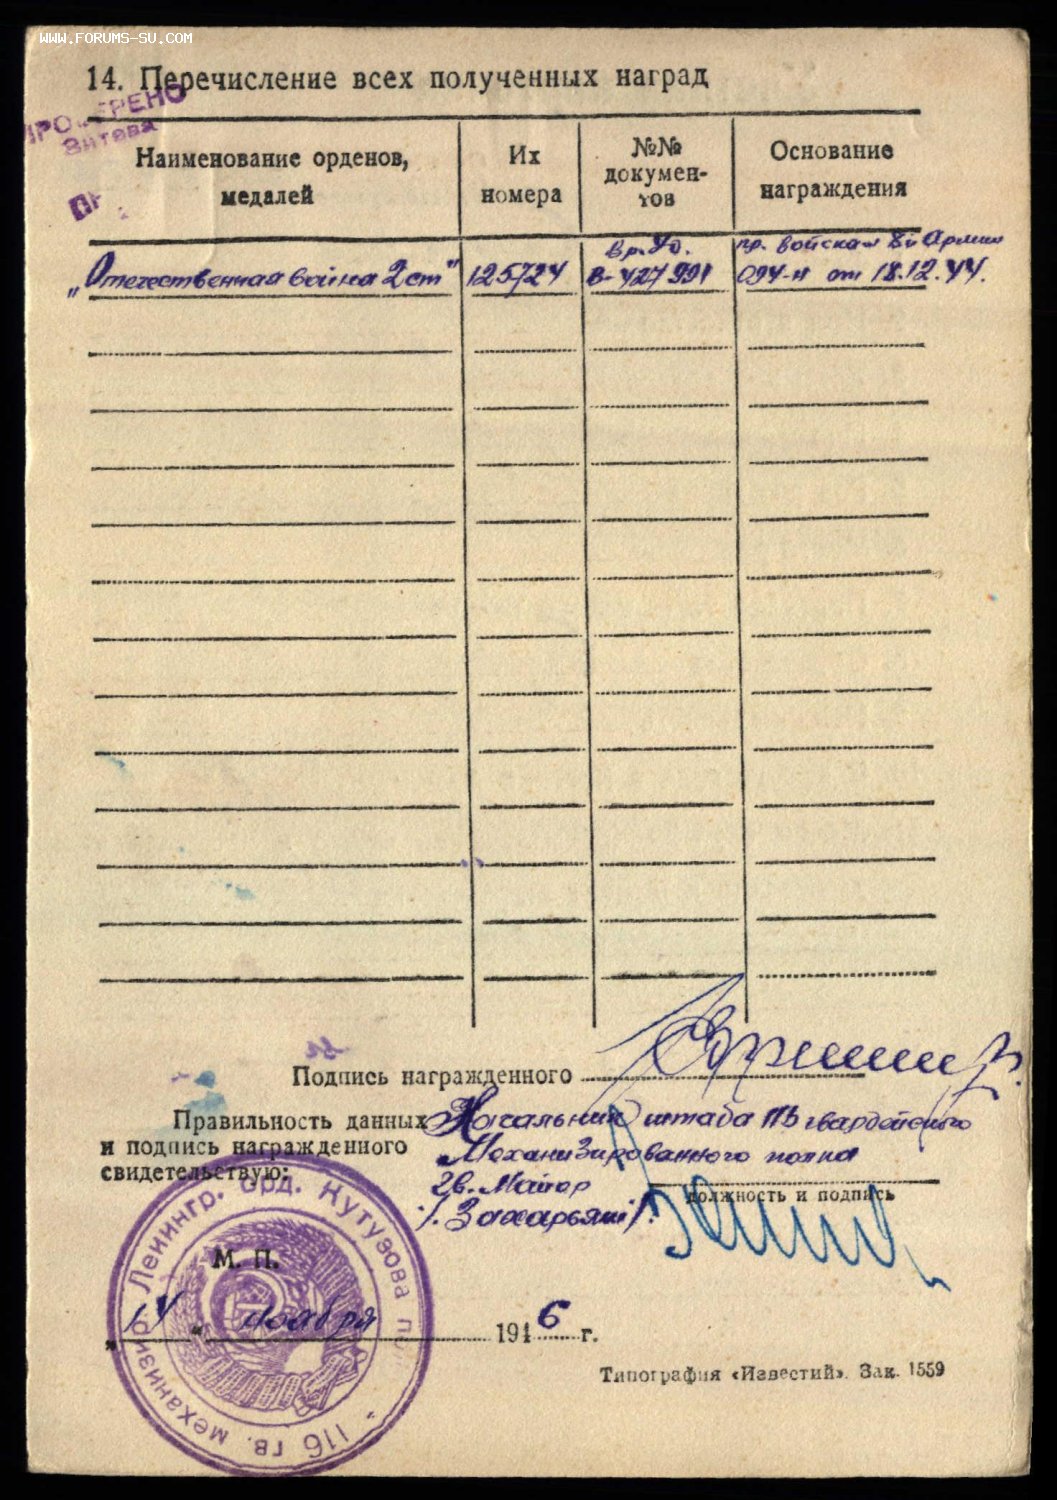 WWW.FORUMS-SU.COM
14. Перечисление всех полученных наград
Наименование орденов, медалей
Их номера
№№ докумен-тов
Основание награждения
„Отечественная война 2 ст"
125724
вр. уд. В-427991
пр. войскам 8й Армии 094-н от 18.12.44.
Подпись награжденного
Правильность данных
и подпись награжденного
свидетельствую:
Начальник штаба 116 гвардейского
Механизированного полка
гв. Майор
/. Захарьян /.
должность и подпись
М. П.
„14" ноября 1946 г.
116 гв. механизир. Ленингр. орд. Кутузова
Типография «Известий». Зак. 1559